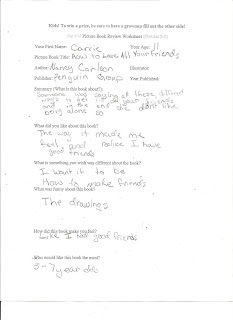 Kids! To win a prize, be sure to have a grownup fill out the other side!
Picture Book Review Worksheet
Your First Name: Carrie Your Age: 11
Picture Book Title: How to Lose All Your Friends
Author: Nancy Carlson Illustrator:
Publisher: Penguin Group Year Published:
Summary (What is this book about?):
Someone was saying all these different
ways to get rid of your friends
and in the end she didn't like
being alone so
What did you like about this book?
The way it made me
feel and realize I have
good friends
What is something you wish was different about the book?
I want it to be
How to make friends
What was funny about this book?
The drawings
How did this book make you feel?
Like I had good friends
Who would like this book the most?
3-7 year olds